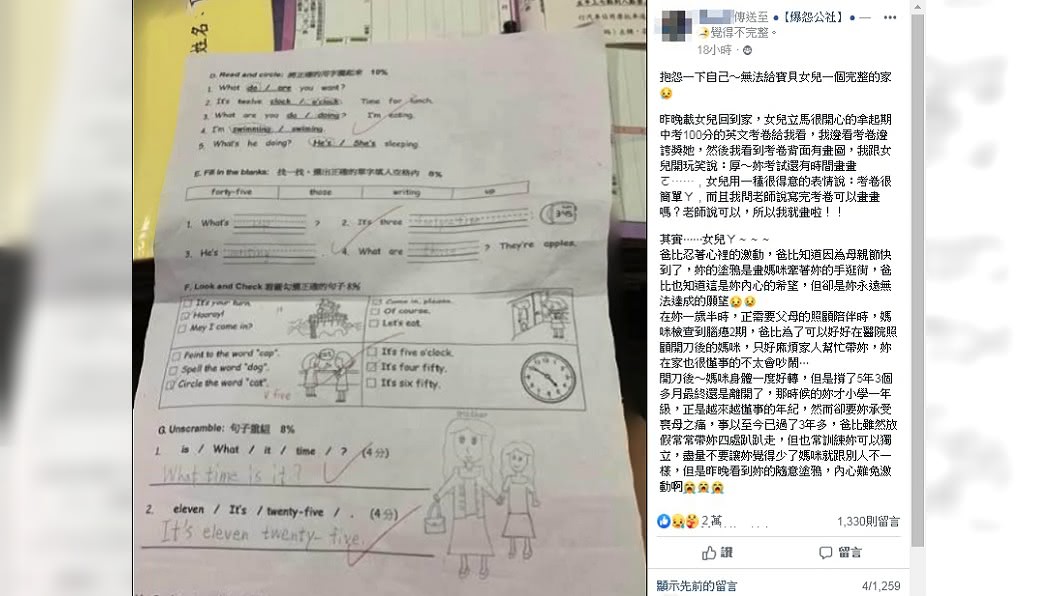 姓名:
D. Read and circle: 將正確的用字圈起來 10%
1. What do / are you want?
2. It's twelve clock / o'clock. Time for lunch.
3. What are you do / doing? I'm eating.
4. I'm swimming / swiming.
5. What's he doing? He's / She's sleeping.
E. Fill in the blanks: 找一找,選出正確的單字填入空格內 8%
forty-five those writing up
1. What's up ? 2. It's three forty-five 3:45
3. He's writing 4. What are those ? They're apples.
F. Look and Check 看圖勾選正確的句子 8%
It's your turn. Come in, please.
Hooray! Of course.
May I come in? Let's eat.
Point to the word "cap". It's five o'clock.
Spell the word "dog". It's four fifty.
Circle the word "cat". It's six fifty.
five
G. Unscramble: 句子重組 8%
mother
1. is / What / it / time / ? (4分)
What time is it?
2. eleven / It's / twenty-five / . (4分)
It's eleven twenty-five.
傳送至 【爆怨公社】
覺得不完整。
18小時
抱怨一下自己～無法給寶貝女兒一個完整的家
昨晚載女兒回到家，女兒立馬很開心的拿起期
中考100分的英文考卷給我看，我邊看考卷邊
誇獎她，然後我看到考卷背面有畫圖，我跟女
兒開玩笑說：厚～妳考試還有時間畫畫
ㄛ……，女兒用一種很得意的表情說：考卷很
簡單ㄚ，而且我問老師說寫完考卷可以畫畫
嗎？老師說可以，所以我就畫啦！！
其實……女兒ㄚ～～～
爸比忍著心裡的激動，爸比知道因為母親節快
到了，妳的塗鴉是畫媽咪牽著妳的手逛街，爸
比也知道這是妳內心的希望，但卻是妳永遠無
法達成的願望
在妳一歲半時，正需要父母的照顧陪伴時，媽
咪檢查到腦癌2期，爸比為了可以好好在醫院照
顧開刀後的媽咪，只好麻煩家人幫忙帶妳，妳
在家也很懂事的不太會吵鬧…
開刀後～媽咪身體一度好轉，但是撐了5年3個
多月最終還是離開了，那時候的妳才小學一年
級，正是越來越懂事的年紀，然而卻要妳承受
喪母之痛，事以至今已過了3年多，爸比雖然放
假常常帶妳四處趴趴走，但也常訓練妳可以獨
立，盡量不要讓妳覺得少了媽咪就跟別人不一
樣，但是昨晚看到妳的隨意塗鴉，內心難免激
動啊
2 萬 1,330則留言
讚 留言
顯示先前的留言 4/1,259